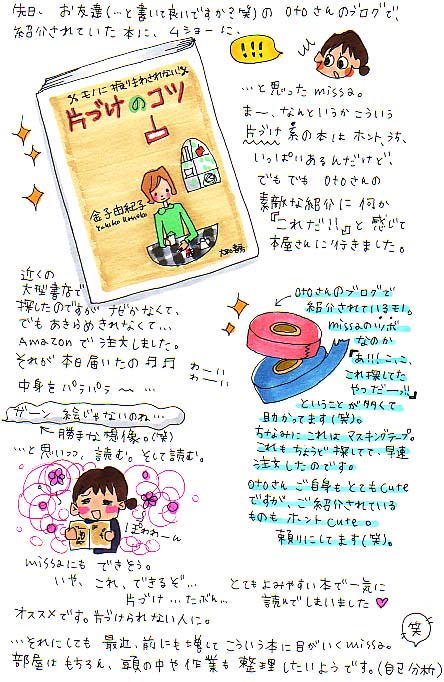 先日、お友達(…と書いて良いですか？笑)の otoさんのブログで、
紹介されていた本に、ムショーに、
!!!
モノに振りまわされない!!
片づけのコツ
金子由紀子
Yukiko Kaneko
大和書房
…と思ったmissa。
ま〜、なんというかこういう
片づけ系の本はホント、うち、
いっぱいあるんだけど、
でもでも otoさんの
素敵な紹介に何か
『これだ!!』と感じて
本屋さんに行きました。
近くの
大型書店で
探したのですがナゼかなくて、
でもあきらめきれなくて…
Amazonで注文しました。
それが本日届いたの♫♫
わーい
わーい
中身をパラパラ〜 …
ガーン 絵じゃないのね…
←勝手な想像。(笑)
…と思いつつ、読む。そして読む。
ぽわわーん
missaにもできそう。
いや、これ、できるぞ…
片づけ…たぶん…
← otoさんのブログで
紹介されているモノ。
missaのツボ
なのか
『あ!!しこっこ、
これ探してた
やつだーっ!!』
ということが多々くて
助かってます(笑)。
ちなみにこれはマスキングテープ。
これもちょうど探してて、早速
注文したのです。
otoさんご自身もとてもcute
ですが、ご紹介されている
ものもホントcute。
頼りにしてます(笑)。
とてもよみやすい本で一気に
読んでしまいました♥
オススメです。片づけられない人に。
笑
…それにしても最近、前にも増してこういう本に目がいくmissa。
部屋はもちろん、頭の中や作業も整理したいようです。(自己分析)